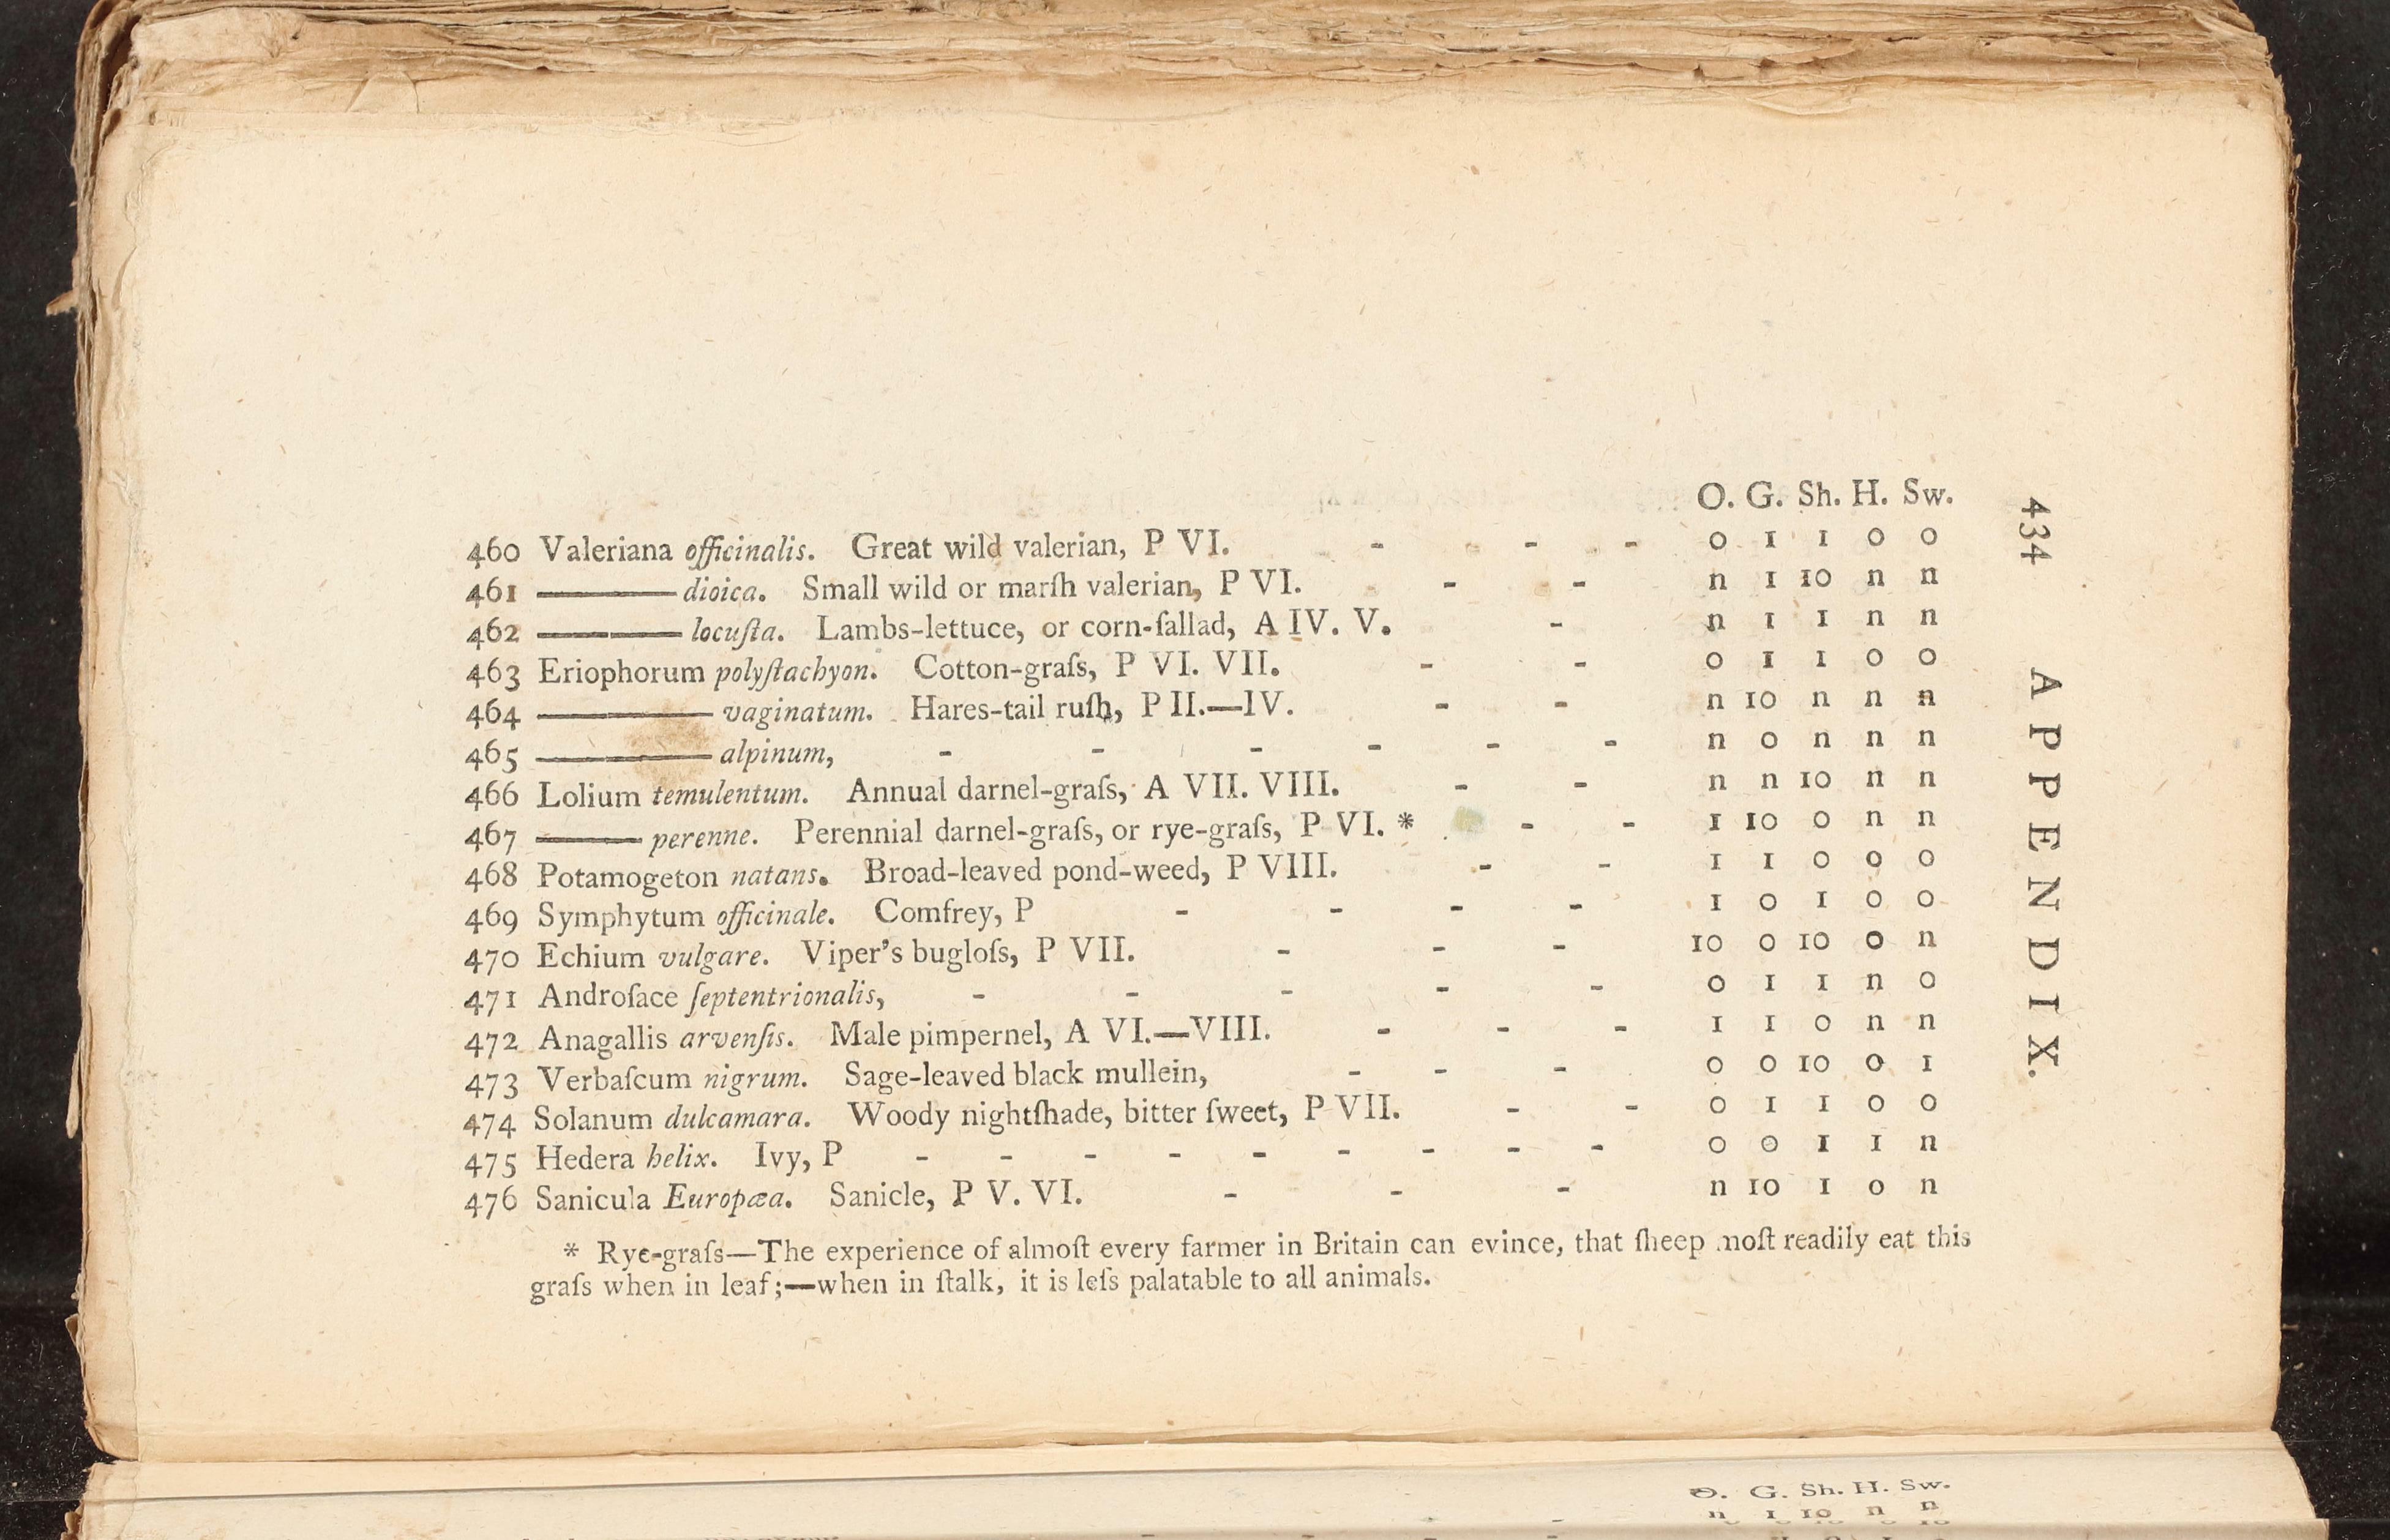 434 APPENDIX.
O. G. Sh. H. Sw.
460 Valeriana officinalis. Great wild valerian, P VI. - - - 0 1 1 0 0
461 ——— dioica. Small wild or marſh valerian, P VI. - - n 1 10 n n
462 ——— locuſta. Lambs-lettuce, or corn-ſallad, A IV. V. - n 1 1 n n
463 Eriophorum polyſtachyon. Cotton-graſs, P VI. VII. - - 0 1 1 0 0
464 ——— vaginatum. Hares-tail ruſh, P II.—IV. - - n 10 n n n
465 ——— alpinum, - - - - - - n 0 n n n
466 Lolium temulentum. Annual darnel-graſs, A VII. VIII. - - n n 10 n n
467 ——— perenne. Perennial darnel-graſs, or rye-graſs, P VI. * - - 1 10 0 n n
468 Potamogeton natans. Broad-leaved pond-weed, P VIII. - - 1 1 0 0 0
469 Symphytum officinale. Comfrey, P - - - - 1 0 1 0 0
470 Echium vulgare. Viper's bugloſs, P VII. - - - 10 0 10 0 n
471 Androſace ſeptentrionalis, - - - - - 0 1 1 n 0
472 Anagallis arvenſis. Male pimpernel, A VI.—VIII. - - - 1 1 0 n n
473 Verbaſcum nigrum. Sage-leaved black mullein, - - - 0 0 10 0 1
474 Solanum dulcamara. Woody nightſhade, bitter ſweet, P VII. - - 0 1 1 0 0
475 Hedera helix. Ivy, P - - - - - - - - - 0 0 1 1 n
476 Sanicula Europæa. Sanicle, P V. VI. - - - n 10 1 0 n
* Rye-graſs—The experience of almoſt every farmer in Britain can evince, that ſheep moſt readily eat this
graſs when in leaf;—when in ſtalk, it is leſs palatable to all animals.
O. G. Sh. H. Sw.
n 1 10 n n